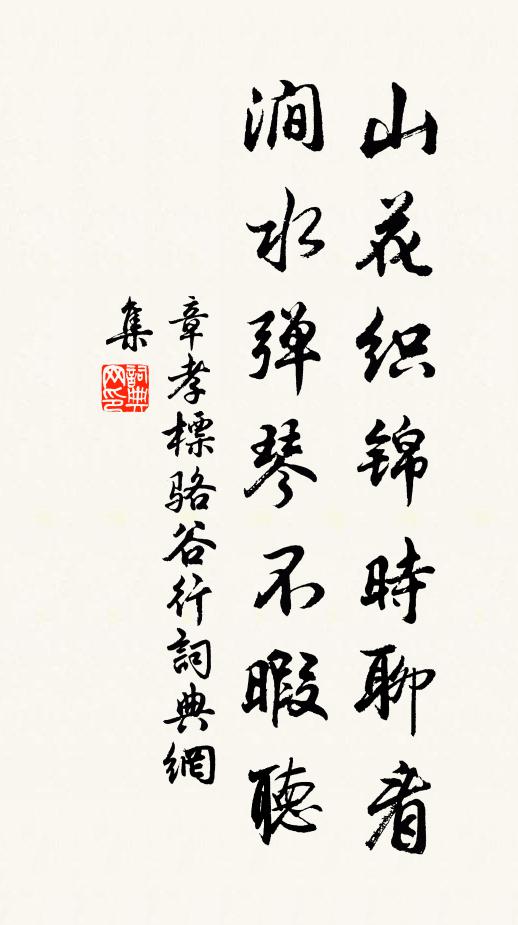 山花织锦時聊看
澗水弹琴不暇聽
章孝標骆谷行詞典網
集
詞典
网印